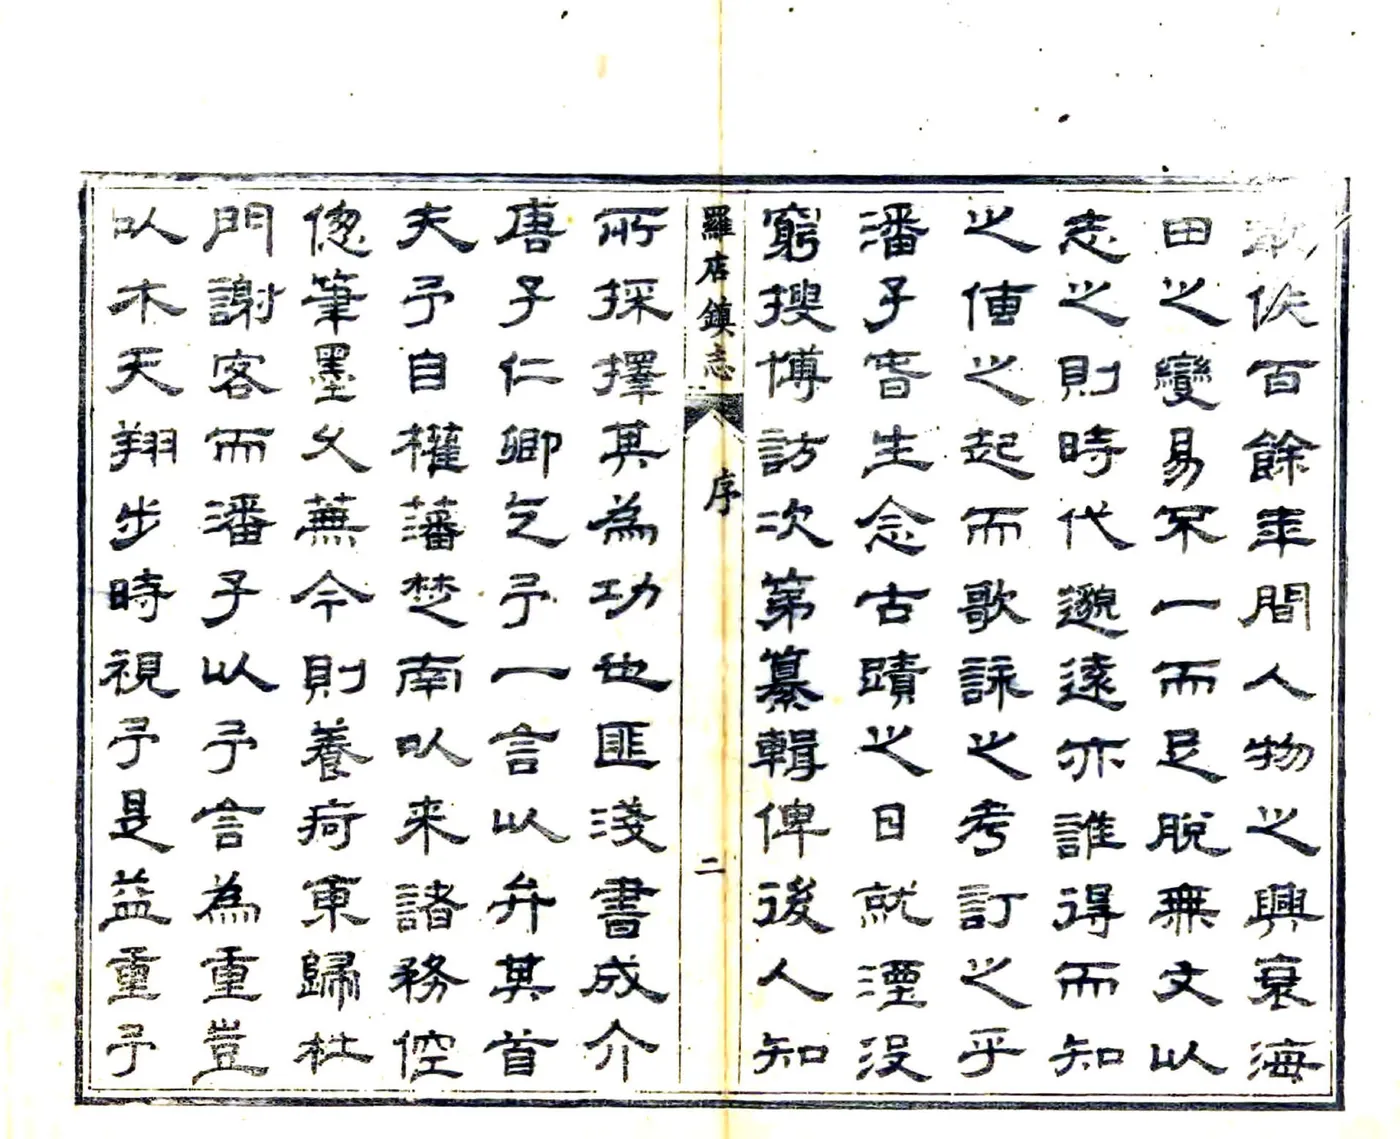 佚百餘年間人物之興衰海
田之變易不一而足脫無文以
志之則時代邈遠亦誰得而知
之傳之起而歌詠之考訂之乎
潘子旾生念古蹟之日就湮沒
窮搜博訪次第纂輯俾後人知
羅店鎮志 序 二
所採擇其為功也匪淺書成介
唐子仁卿乞予一言以弁其首
夫予自權藩楚南以来諸務倥
傯筆墨久蕪今則養疴東歸杜
門謝客而潘子以予言為重豈
以木天翔步時視予是益重予